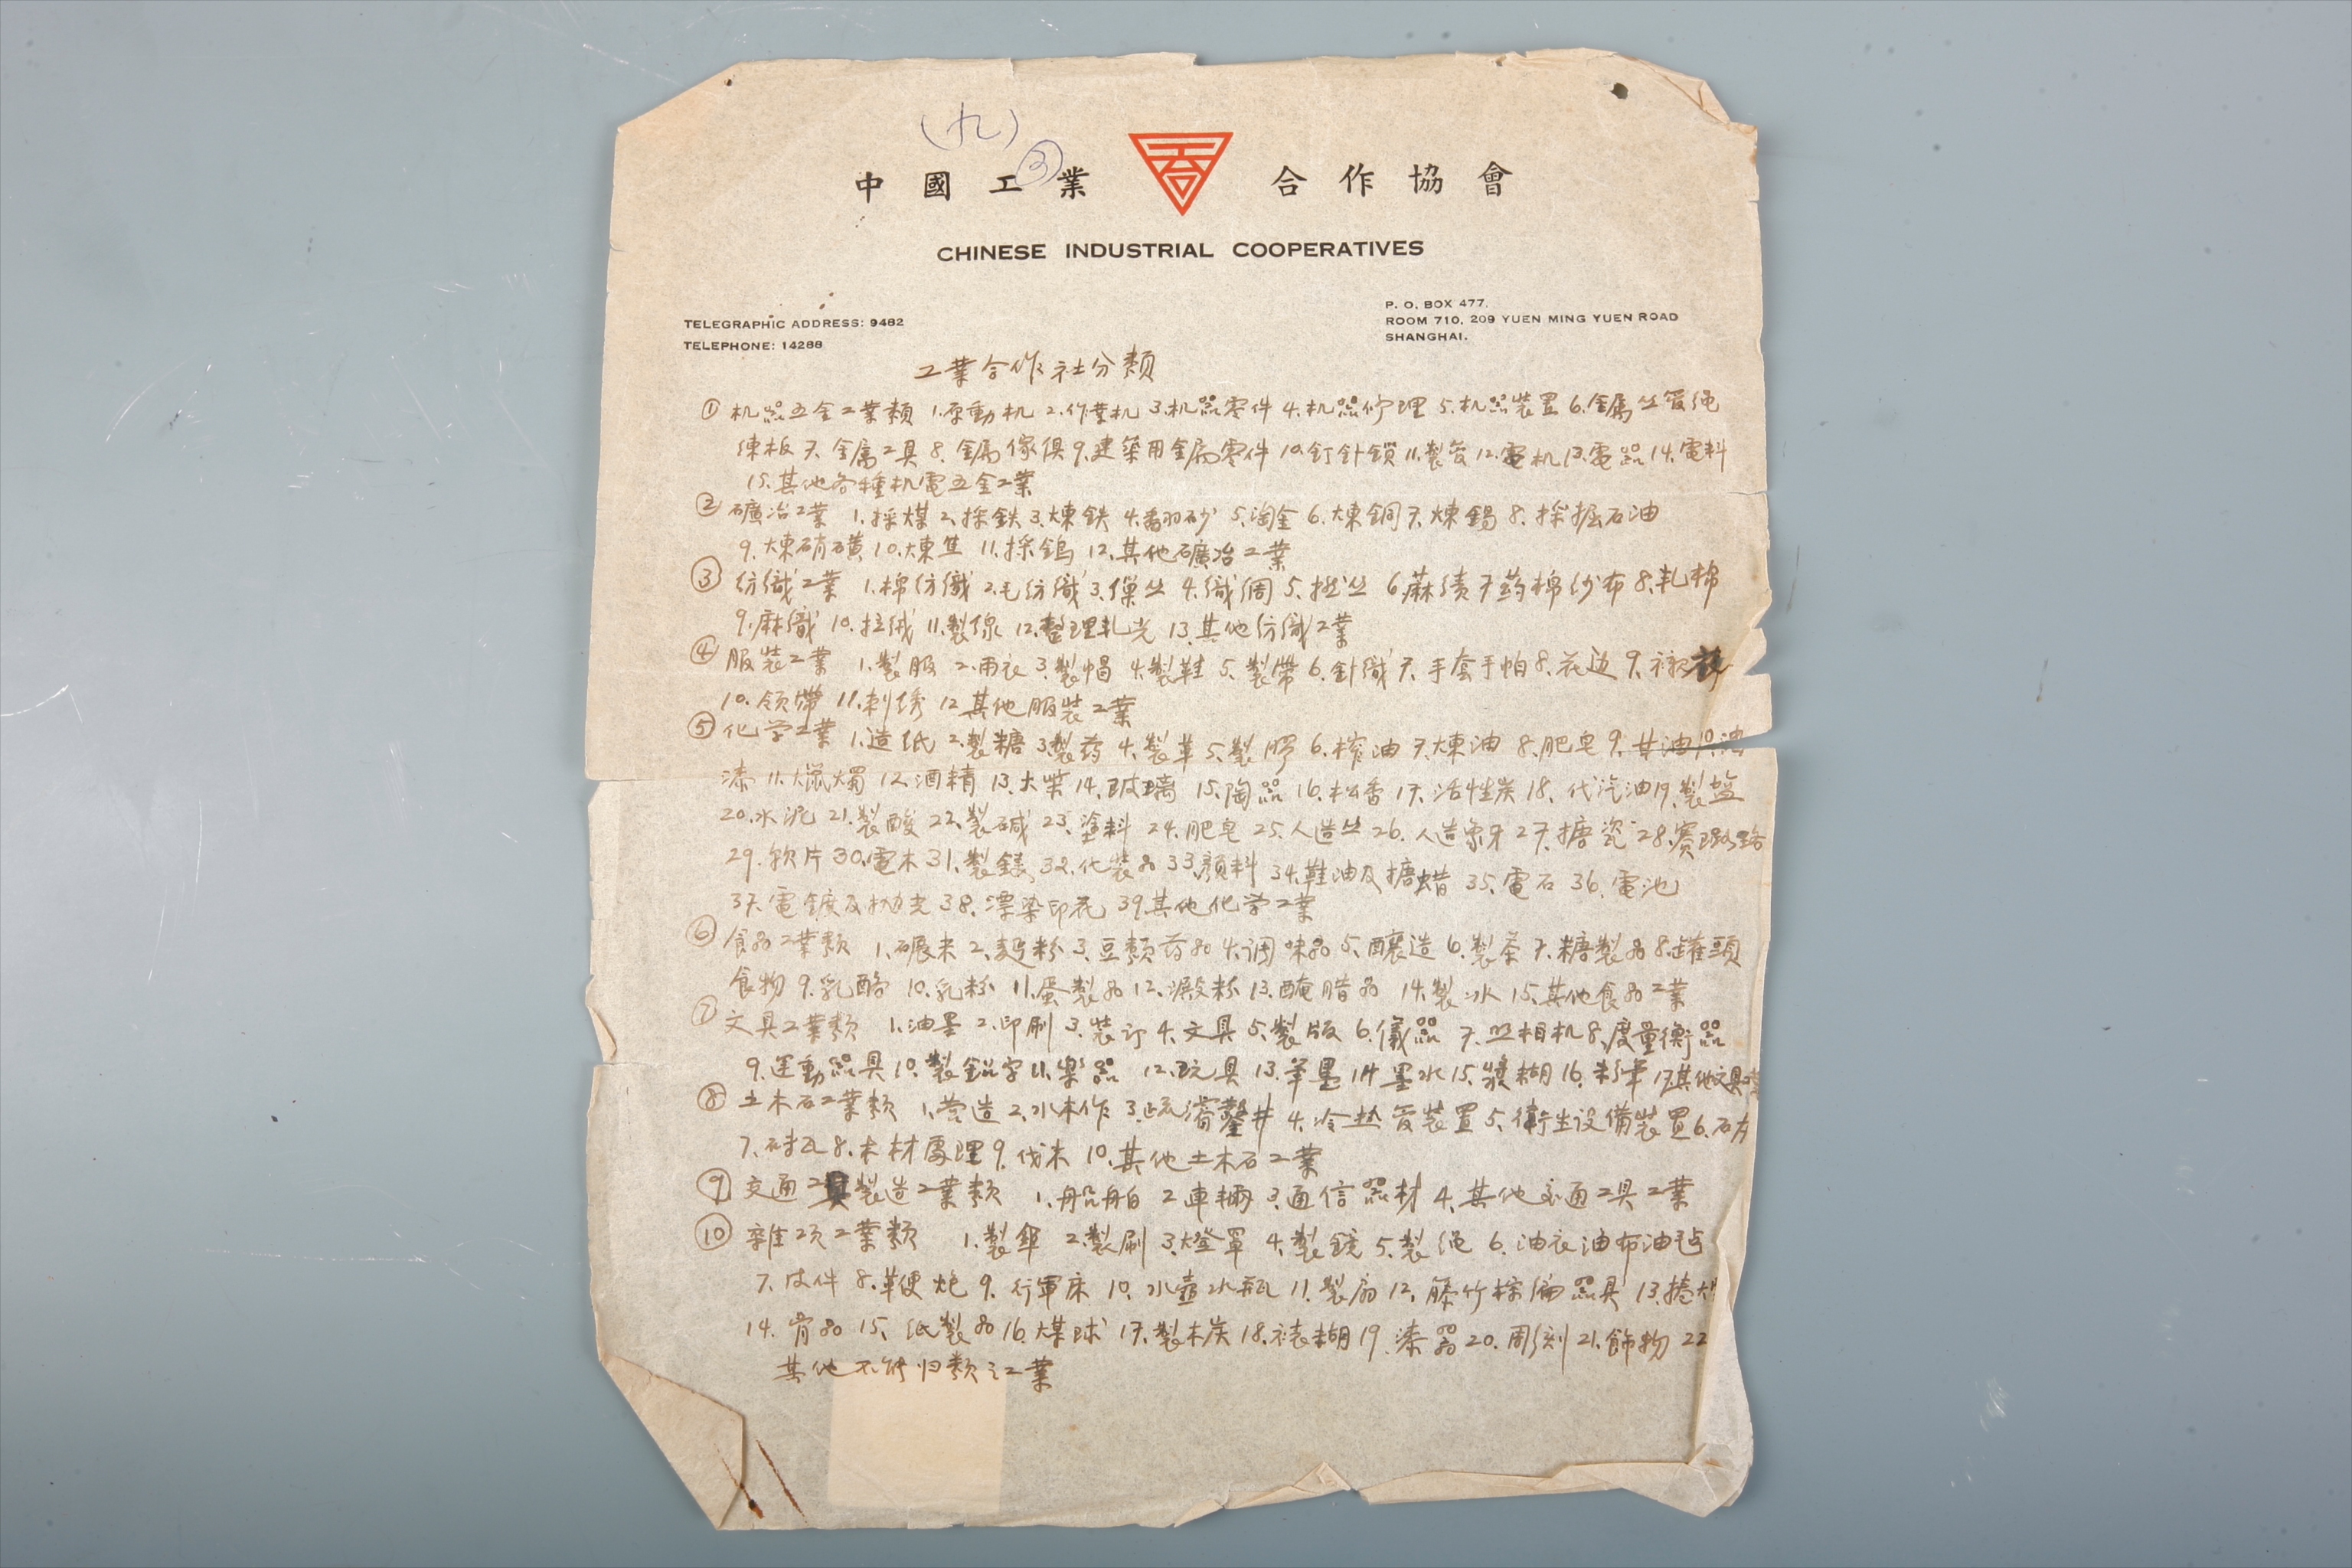 (九)
③
中國工業 合作協會
CHINESE INDUSTRIAL COOPERATIVES
P. O. BOX 477.
TELEGRAPHIC ADDRESS: 9482
ROOM 710, 209 YUEN MING YUEN ROAD
TELEPHONE: 14288
SHANGHAI.
工業合作社分類
① 机器五金工業類 1.原動机 2.作業机 3.机器零件 4.机器修理 5.机器裝置 6.金属丝管绳
鍊板 7.金属工具 8.金属傢俱 9.建築用金属零件 10.釘針鎖 11.製管 12.電机 13.電器 14.電料
15.其他各種机電五金工業
② 礦冶工業 1.採煤 2.採鉄 3.煉鉄 4.翻砂 5.淘金 6.煉銅 7.煉錫 8.採掘石油
9.煉硝磺 10.煉焦 11.採鎢 12.其他礦冶工業
③ 纺織工業 1.棉纺織 2.毛纺織 3.缫丝 4.織绸 5.撚丝 6.蔴绩 7.药棉纱布 8.軋棉
9.麻織 10.拉绒 11.製線 12.整理軋光 13.其他纺織工業
④ 服装工業 1.製服 2.雨衣 3.製帽 4.製鞋 5.製帶 6.針織 7.手套手帕 8.花边 9.襯衫
10.领带 11.刺绣 12.其他服裝工業
⑤ 化学工業 1.造纸 2.製糖 3.製药 4.製革 5.製膠 6.榨油 7.煉油 8.肥皂 9.甘油 10.油
漆 11.蠟燭 12.酒精 13.火柴 14.玻璃 15.陶器 16.松香 17.活性炭 18.代汽油 19.製盐
20.水泥 21.製酸 22.製碱 23.塗料 24.肥皂 25.人造丝 26.人造象牙 27.搪瓷 28.賽璐珞
29.软片 30.電木 31.製鎂 32.化装品 33.顏料 34.鞋油及搪蜡 35.電石 36.電池
37.電鍍及抛光 38.漂染印花 39.其他化学工業
⑥ 食品工業類 1.碾米 2.麪粉 3.豆類 4.调味品 5.釀造 6.製茶 7.糖製品 8.罐頭
食物 9.乳酪 10.乳粉 11.蛋製品 12.澱粉 13.醃腊品 14.製冰 15.其他食品工業
⑦ 文具工業類 1.油墨 2.印刷 3.装订 4.文具 5.製版 6.儀器 7.照相机 8.度量衡器
9.运動器具 10.製鉛字 11.樂器 12.玩具 13.筆墨 14.墨水 15.漿糊 16.粉筆 17.其他文具工業
⑧ 土木石工業類 1.营造 2.水木作 3.疏濬鑿井 4.冷热管装置 5.衛生設備裝置 6.石灰
7.砖瓦 8.木材處理 9.伐木 10.其他土木石工業
⑨ 交通工具製造工業類 1.船舶 2.車輛 3.通信器材 4.其他交通工具工業
⑩ 雜項工業類 1.製傘 2.製刷 3.燈罩 4.製鏡 5.製绳 6.油衣油布油毡
7.皮件 8.鞭炮 9.行軍床 10.水壺水瓶 11.製扇 12.藤竹棕编器具 13.捲烟
14.骨品 15.纸製品 16.煤球 17.製木炭 18.裱糊 19.漆器 20.彫刻 21.飾物 22
其他不能归類之工業